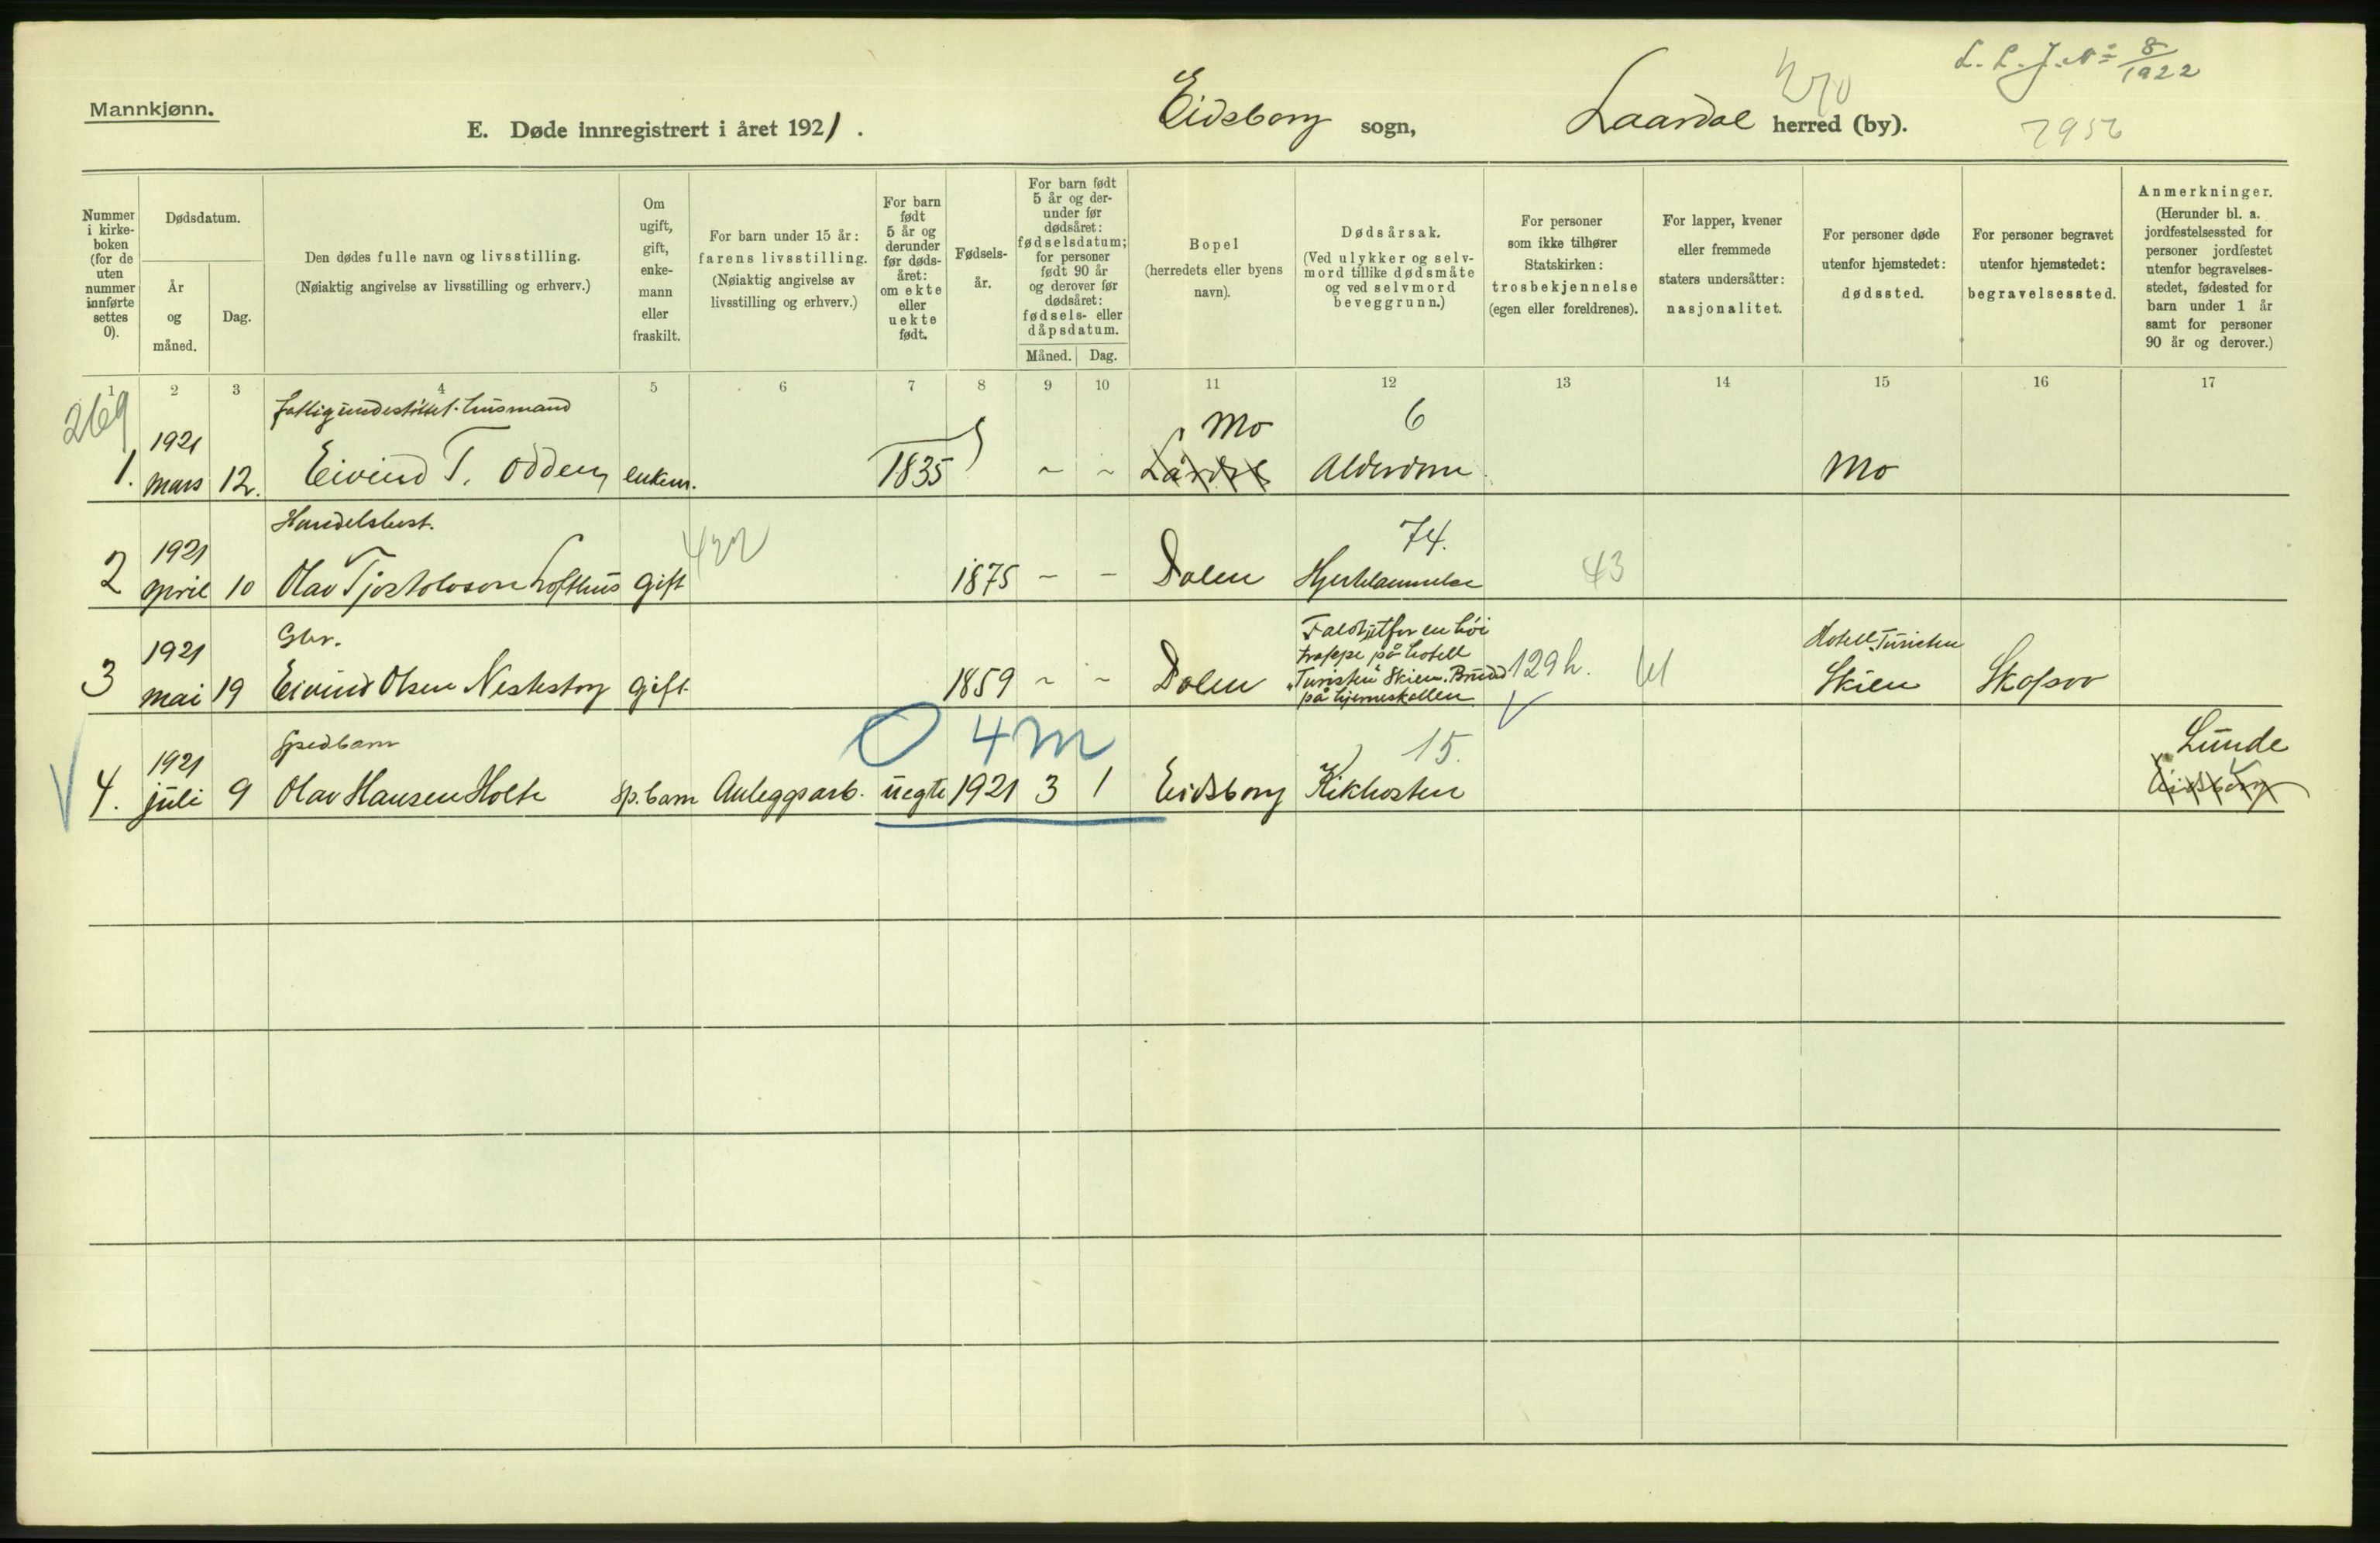 L. L. J. Nº 8/1922
Mannkjønn.
E. Døde innregistrert i året 1921.
Eidsborg sogn,
Laardal herred (by).
Nummer i kirke-boken (for de uten nummer innførte settes 0).
Dødsdatum.
År og måned.
Dag.
Den dødes fulle navn og livsstilling.
(Nøiaktig angivelse av livsstilling og erhverv.)
Om ugift, gift, enke-mann eller fraskilt.
For barn under 15 år: farens livsstilling.
(Nøiaktig angivelse av livsstilling og erhverv.)
For barn født 5 år og derunder før døds-året: om ekte eller uekte født.
Fødsels-år.
For barn født 5 år og der-under før dødsåret: fødselsdatum; for personer født 90 år og derover før dødsåret: fødsels- eller dåpsdatum.
Måned. Dag.
Bopel
(herredets eller byens navn).
Dødsårsak.
(Ved ulykker og selv-mord tillike dødsmåte og ved selvmord beveggrunn.)
For personer som ikke tilhører Statskirken: trosbekjennelse (egen eller foreldrenes).
For lapper, kvener eller fremmede staters undersåtter: nasjonalitet.
For personer døde utenfor hjemstedet: dødssted.
For personer begravet utenfor hjemstedet: begravelsessted.
Anmerkninger.
(Herunder bl. a. jordfestelsessted for personer jordfestet utenfor begravelses-stedet, fødested for barn under 1 år samt for personer 90 år og derover.)
1 2 3 4 5 6 7 8 9 10 11 12 13 14 15 16 17
269
fattigunderstöttet. husmand
Mo
6
1. 1921 mars 12. Eivind T. Odden enkem. 1835 ~ ~ Lårdal Alderdom Mo
Handelsbest.
422
74.
2 1921 april 10 Olav Tjostolvson Lofthus gift 1875 – – Dalen Hjertelammelse 43
Gbr.
Faldt utfor en höi
trappe på hotell
„Turisten" Skien. Brudd
på hjerneskallen
Hotell Turisten
3 1921 mai 19 Eivind Olsen Nestestog gift 1859 ~ ~ Dalen 129 h. Skien Skafsoo
0 4 m
Spedbarn
15.
Lunde
4. 1921 juli 9 Olav Hansen Holte sp.barn Anleggsarb. uegte 1921 3 1 Eidsborg Kikhosten Eidsborg